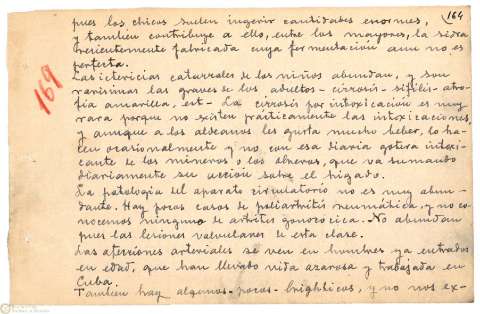 164
169
pues los chicos suelen ingerir cantidades enormes,
y también contribuye a ello, entre los mayores, la sidra
recientemente fabricada cuya fermentación aun no es
perfecta.
Las ictericias catarrales de los niños abundan, y son
rarísimas las graves de los adultos - cirrosis - sífilis - atro-
fia amarilla, est - La cirrosis por intoxicación es muy
rara porque no existen prácticamente las intoxicaciones,
y aunque a los aldeanos les gusta mucho beber, lo ha-
cen ocasionalmente y no con esa diaria gotera intoxi-
cante de los mineros o los obreros, que va sumando
diariamente su acción sobre el hígado.
La patología del aparato circulatorio no es muy abun-
dante. Hay pocos casos de poliartritis reumática, y no co-
nocemos ninguno de artritis gonocócica. No abundan
pues las lesiones valvulares de esta clase.
Las afecciones arteriales se ven en hombres ya entrados
en edad, que han llevado vida azarosa y trabajada en
Cuba.
También hay algunos - pocos - brighticos, y no nos ex-